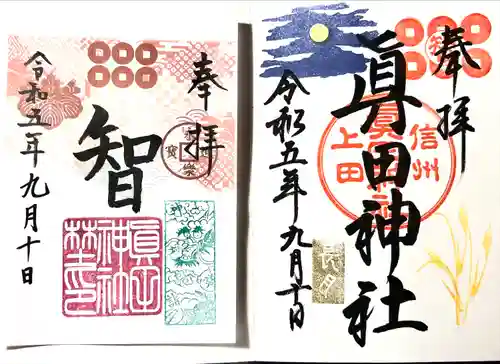 奉拝
智
令和五年九月十日
眞田神社
奉拝
眞田神社
信州
上田
令和五年九月十日
長月